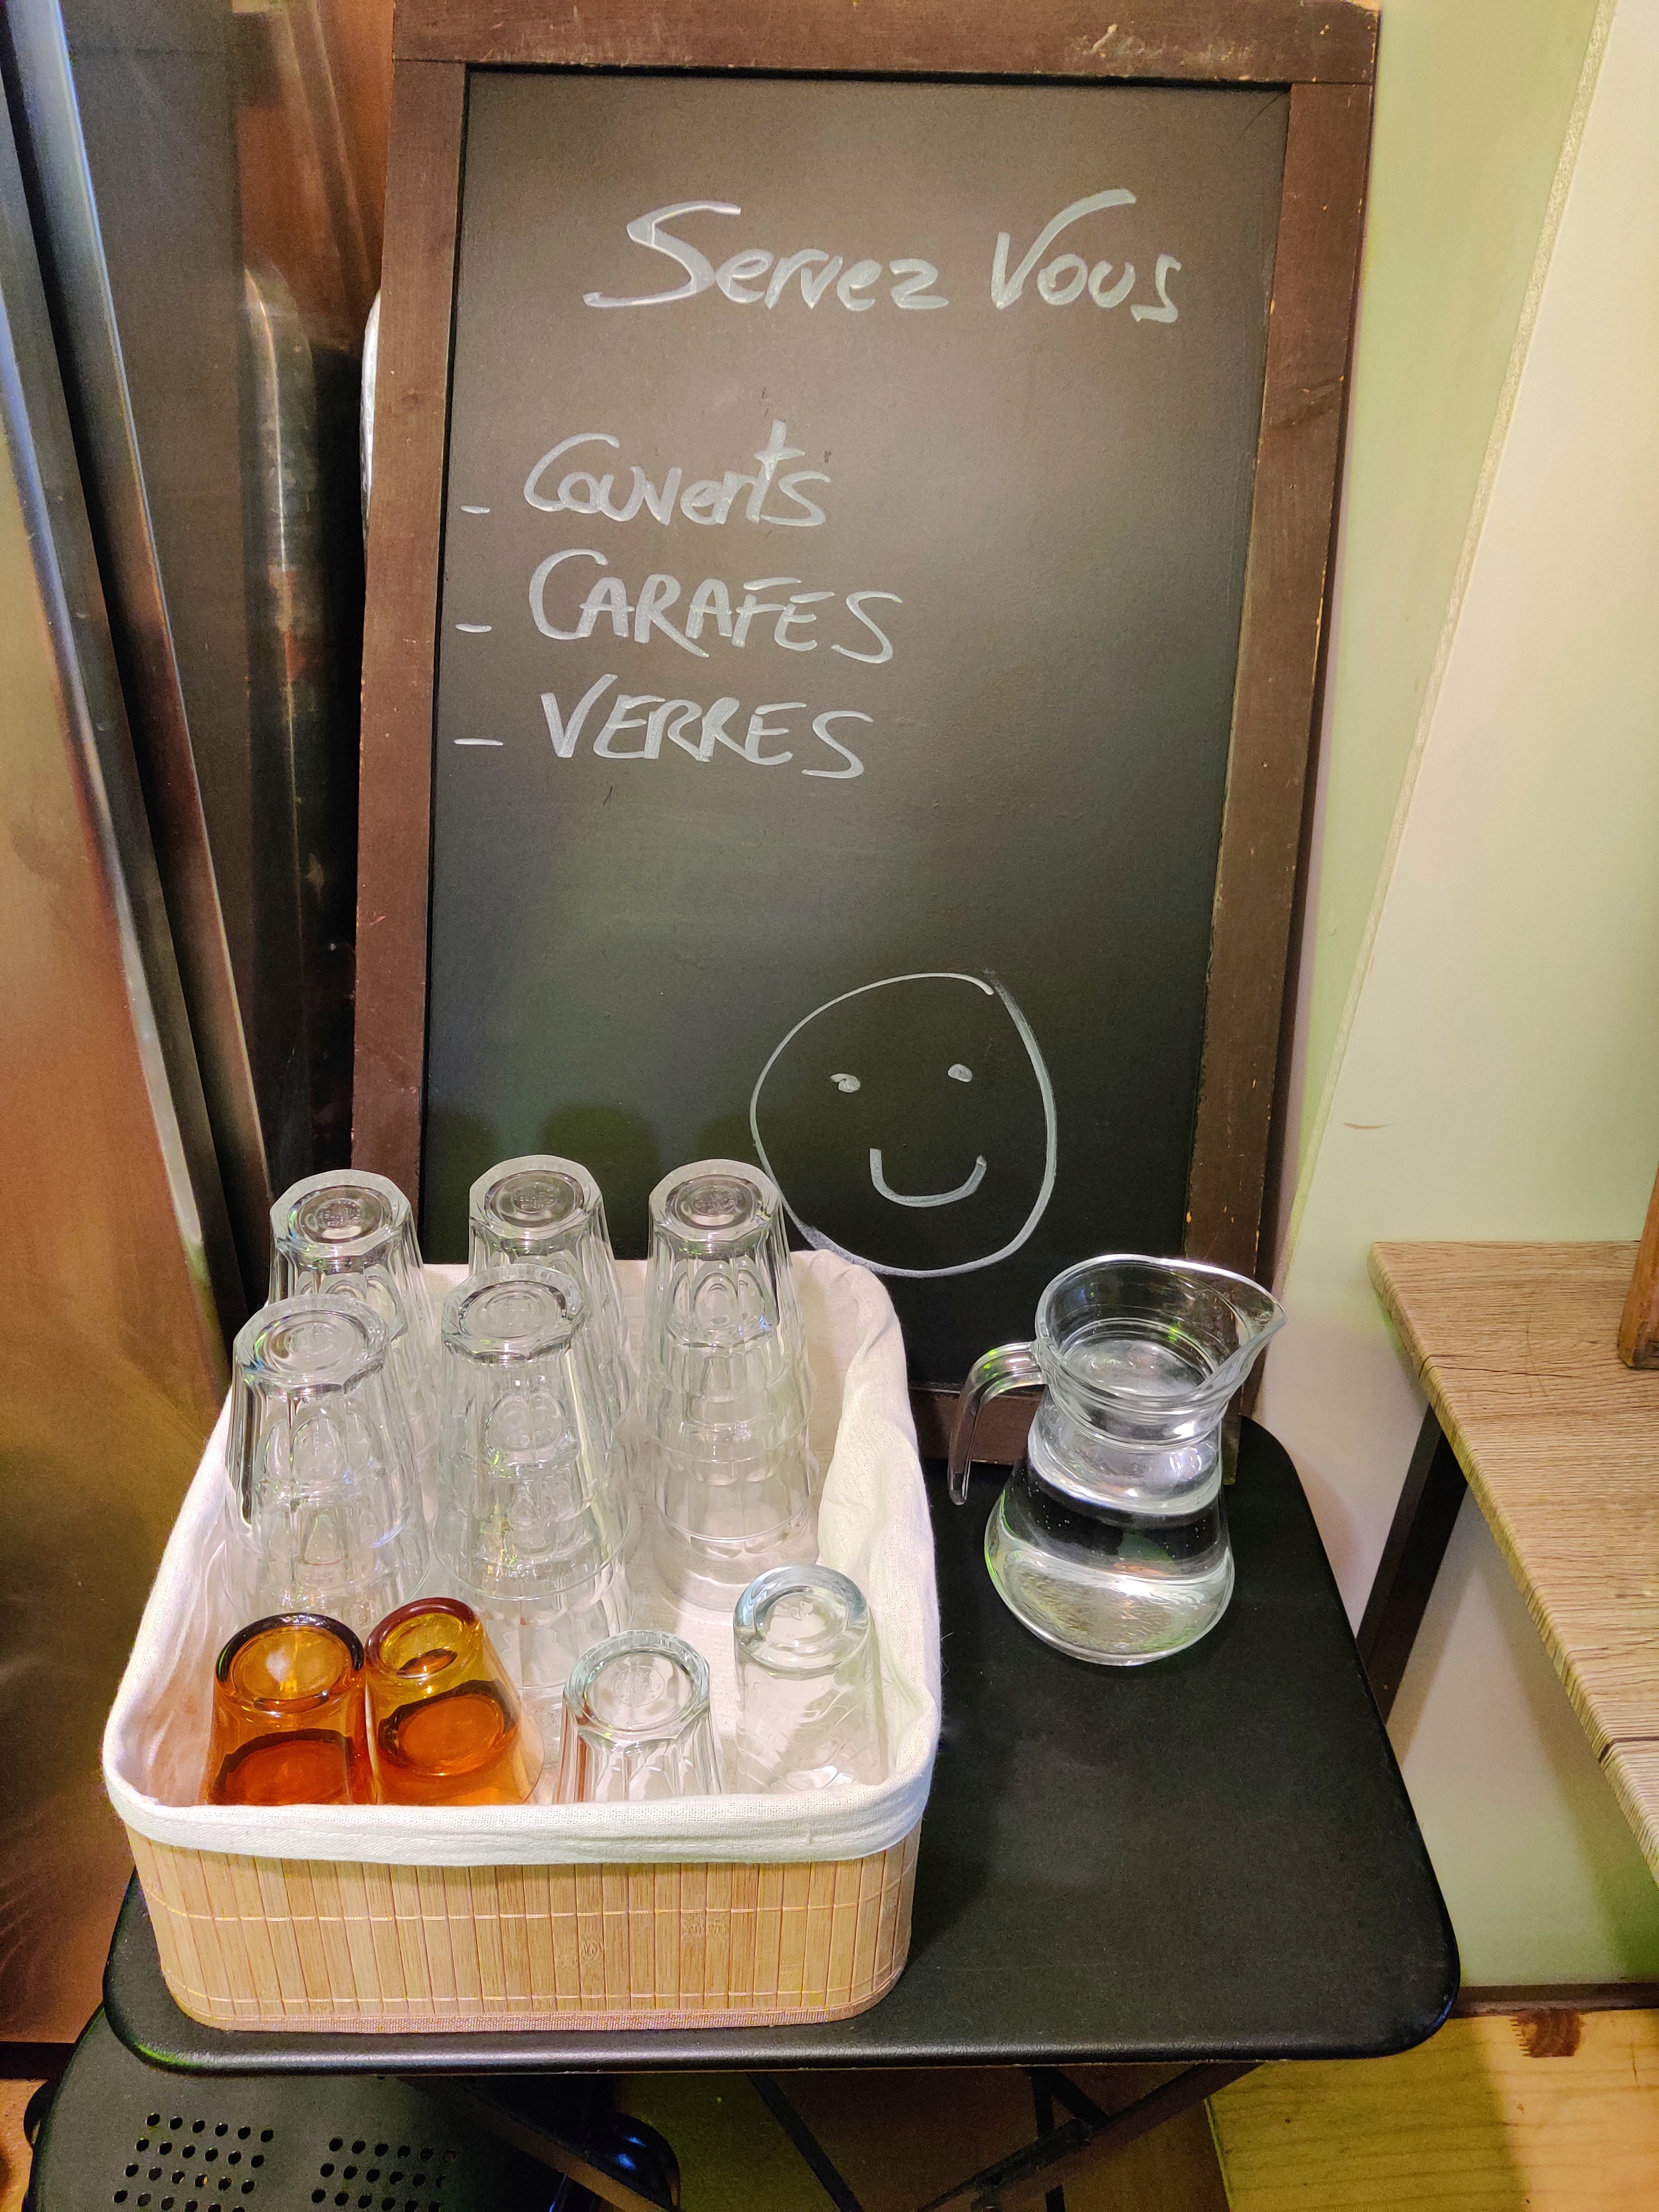 Servez Vous
- Couverts
- CARAFES
- VERRES